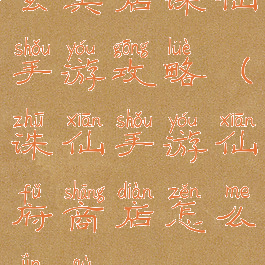 店诛仙
shǒu yóu gōng lüè
手游攻略（
zhū xiān shǒu yóu xiān
诛仙手游仙
fǔ shāng diàn zěn me
府商店怎么